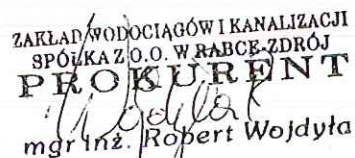 ZAKŁAD WODOCIĄGÓW I KANALIZACJI
SPÓŁKA Z O.O. W RABCE-ZDRÓJ
PROKURENT
mgr inż. Robert Wojdyła